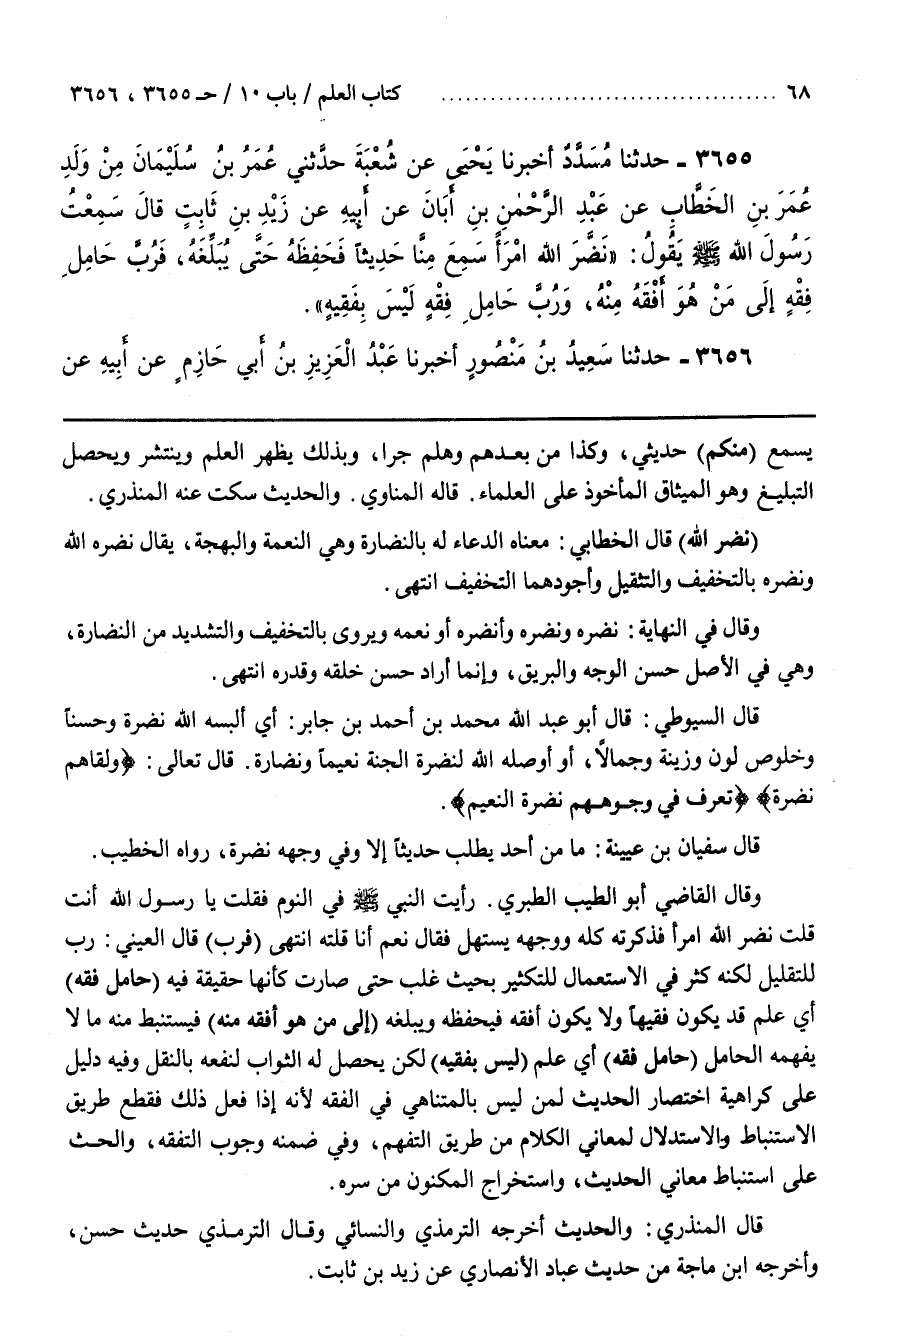 ٦٨ ........................................ كتاب العلم / باب ١٠ / حـ ٣٦٥٥ ، ٣٦٥٦
٣٦٥٥ ـ حدثنا مُسَدَّدٌ أخبرنا يَحْيَى عن شُعْبَةَ حدَّثني عُمَرُ بنُ سُلَيْمَانَ مِنْ وَلَدِ
عُمَرَ بنِ الخَطَّابِ عن عَبْدِ الرَّحْمٰنِ بنِ أَبَانَ عن أَبِيهِ عن زَيْدِ بنِ ثَابِتٍ قالَ سَمِعْتُ
رَسُولَ الله ﷺ يَقُولُ: «نَضَّرَ الله امْرَأً سَمِعَ مِنَّا حَدِيثاً فَحَفِظَهُ حَتَّى يُبَلِّغَهُ، فَرُبَّ حَامِلِ
فِقْهٍ إلَى مَنْ هُوَ أَفْقَهُ مِنْهُ، وَرُبَّ حَامِلِ فِقْهٍ لَيْسَ بِفَقِيهٍ».
٣٦٥٦ ـ حدثنا سَعِيدُ بنُ مَنْصُورٍ أخبرنا عَبْدُ الْعَزِيزِ بنُ أبي حَازِمٍ عن أَبِيهِ عن
يسمع (منكم) حديثي، وكذا من بعدهم وهلم جرا، وبذلك يظهر العلم وينتشر ويحصل
التبليغ وهو الميثاق المأخوذ على العلماء. قاله المناوي. والحديث سكت عنه المنذري.
(نضر الله) قال الخطابي: معناه الدعاء له بالنضارة وهي النعمة والبهجة، يقال نضره الله
ونضره بالتخفيف والتثقيل وأجودهما التخفيف انتهى.
وقال في النهاية: نضره ونضره وأنضره أو نعمه ويروى بالتخفيف والتشديد من النضارة،
وهي في الأصل حسن الوجه والبريق، وإنما أراد حسن خلقه وقدره انتهى.
قال السيوطي: قال أبو عبد الله محمد بن أحمد بن جابر: أي ألبسه الله نضرة وحسناً
وخلوص لون وزينة وجمالاً، أو أوصله الله لنضرة الجنة نعيماً ونضارة. قال تعالى: ﴿ولقاهم
نضرة﴾ ﴿تعرف في وجوههم نضرة النعيم﴾.
قال سفيان بن عيينة: ما من أحد يطلب حديثاً إلا وفي وجهه نضرة، رواه الخطيب.
وقال القاضي أبو الطيب الطبري. رأيت النبي ﷺ في النوم فقلت يا رسول الله أنت
قلت نضر الله امرأ فذكرته كله ووجهه يستهل فقال نعم أنا قلته انتهى (فرب) قال العيني: رب
للتقليل لكنه كثر في الاستعمال للتكثير بحيث غلب حتى صارت كأنها حقيقة فيه (حامل فقه)
أي علم قد يكون فقيهاً ولا يكون أفقه فيحفظه ويبلغه (إلى من هو أفقه منه) فيستنبط منه ما لا
يفهمه الحامل (حامل فقه) أي علم (ليس بفقيه) لكن يحصل له الثواب لنفعه بالنقل وفيه دليل
على كراهية اختصار الحديث لمن ليس بالمتناهي في الفقه لأنه إذا فعل ذلك فقطع طريق
الاستنباط والاستدلال لمعاني الكلام من طريق التفهم، وفي ضمنه وجوب التفقه، والحث
على استنباط معاني الحديث، واستخراج المكنون من سره.
قال المنذري: والحديث أخرجه الترمذي والنسائي وقال الترمذي حديث حسن،
وأخرجه ابن ماجة من حديث عباد الأنصاري عن زيد بن ثابت.